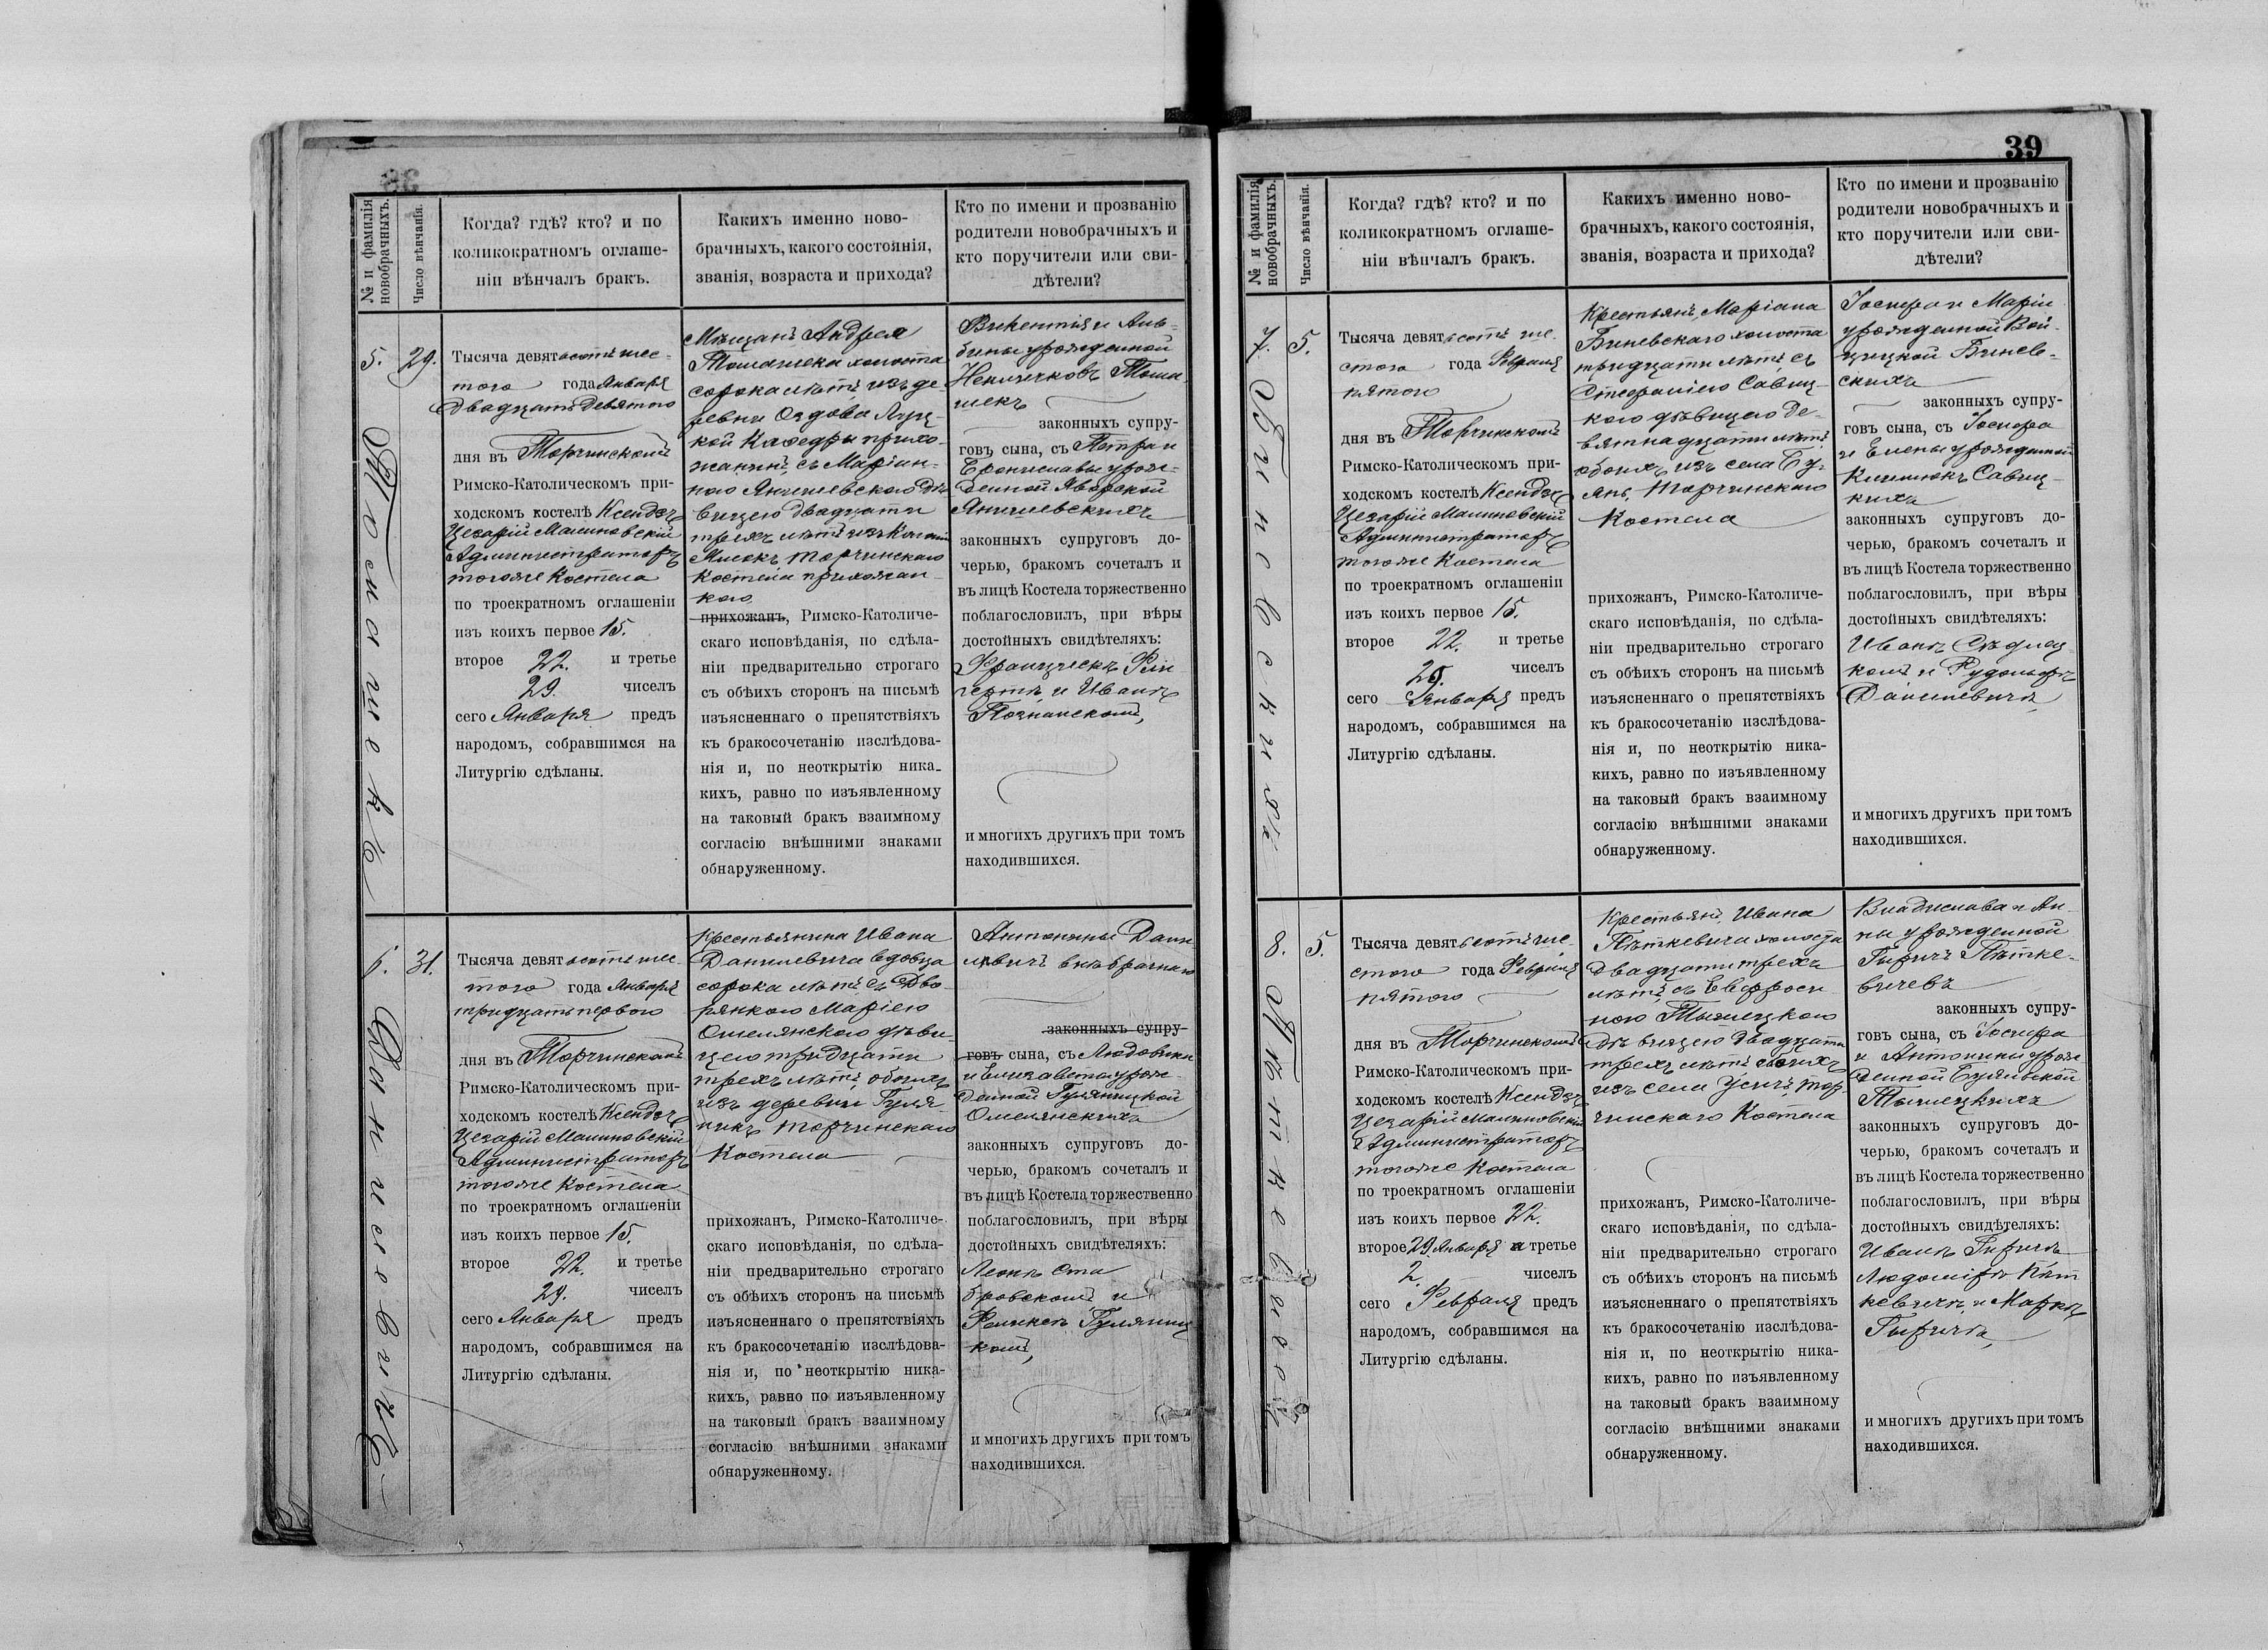 39
№ и фамилія новобрачныхъ.
Число вѣнчанія.
Когда? гдѣ? кто? и по
коликократномъ оглаше-
ніи вѣнчалъ бракъ.
Какихъ именно ново-
брачныхъ, какого состоянія,
званія, возраста и прихода?
Кто по имени и прозванію
родители новобрачныхъ и
кто поручители или сви-
дѣтели?
5.
29.
Тысяча девятьсотъ шес-
того года Января
двадцать девятого
дня въ Торчинскомъ
Римско-Католическомъ при-
ходскомъ костелѣ Ксендзъ
Цезарій Малиновскій
Администраторъ
тогоже Костела
по троекратномъ оглашеніи
изъ коихъ первое 15.
второе 22. и третье
29. чиселъ
сего Января предъ
народомъ, собравшимся на
Литургію сдѣланы.
Мѣщанъ Андрея
Томашека холоста
сорока лѣтъ изъ де
ревни Оздова Луц-
кой Кафедры прихо-
жанинъ, съ Маріан-
ною Янишевскою дѣ
вицею двадцати
трехъ лѣтъ изъ
Торчинскаго
Костела прихожан-
кою
прихожанъ, Римско-Католиче-
скаго исповѣданія, по сдѣла-
ніи предварительно строгаго
съ обѣихъ сторонъ на письмѣ
изъясненнаго о препятствіяхъ
къ бракосочетанію изслѣдова-
нія и, по неоткрытію ника-
кихъ, равно по изъявленному
на таковый бракъ взаимному
согласію внѣшними знаками
обнаруженному.
Викентія и Аль-
бины урожденной
Тома-
шекъ
законныхъ супру-
говъ сына, съ Петра и
Брониславы урож-
денной Яворской
Янишевскихъ
законныхъ супруговъ до-
черью, бракомъ сочеталъ и
въ лицѣ Костела торжественно
поблагословилъ, при вѣры
достойныхъ свидѣтеляхъ:
Францискъ
и Иванъ
Познанскомъ,
и многихъ другихъ при томъ
находившихся.
6.
31.
Данилевичъ
Тысяча девятьсотъ шес-
того года Января
тридцать первого
дня въ Торчинскомъ
Римско-Католическомъ при-
ходскомъ костелѣ Ксендзъ
Цезарій Малиновскій
Администраторъ
тогоже Костела
по троекратномъ оглашеніи
изъ коихъ первое 15.
второе 22. и третье
29. чиселъ
сего Января предъ
народомъ, собравшимся на
Литургію сдѣланы.
Крестьянина Ивана
Данилевича вдовца
сорока лѣтъ съ Дво-
рянкою Маріею
Омелянскою дѣви-
цею тридцати
трехъ лѣтъ, обоихъ
изъ деревни Гуля
никъ Торчинскаго
Костела
прихожанъ, Римско-Католиче-
скаго исповѣданія, по сдѣла-
ніи предварительно строгаго
съ обѣихъ сторонъ на письмѣ
изъясненнаго о препятствіяхъ
къ бракосочетанію изслѣдова-
нія и, по неоткрытію ника-
кихъ, равно по изъявленному
на таковый бракъ взаимному
согласію внѣшними знаками
обнаруженному.
Антонины Дани-
левичъ внѣбрачнаго
законныхъ супру-
говъ сына, съ Людовики
и Елизаветы урож-
денной Гуляницкой
Омелянскихъ
законныхъ супруговъ до-
черью, бракомъ сочеталъ и
въ лицѣ Костела торжественно
поблагословилъ, при вѣры
достойныхъ свидѣтеляхъ:
Леонъ
и
Феликсъ Гуляниц
комъ,
и многихъ другихъ при томъ
находившихся.
№ и фамилія новобрачныхъ.
Число вѣнчанія.
Когда? гдѣ? кто? и по
коликократномъ оглаше-
ніи вѣнчалъ бракъ.
Какихъ именно ново-
брачныхъ, какого состоянія,
званія, возраста и прихода?
Кто по имени и прозванію
родители новобрачныхъ и
кто поручители или сви-
дѣтели?
7.
5.
Тысяча девятьсотъ ше-
стого года Февраля
пятого
дня въ Торчинскомъ
Римско-Католическомъ при-
ходскомъ костелѣ Ксендзъ
Цезарій Малиновскій
Администраторъ
тогоже Костела
по троекратномъ оглашеніи
изъ коихъ первое 15.
второе 22. и третье
29. чиселъ
сего Января предъ
народомъ, собравшимся на
Литургію сдѣланы.
Крестьянъ, Маріана
Биневскаго холоста
тридцати лѣтъ, съ
Стефаніею Савиц-
кою дѣвицею де-
вятнадцати лѣтъ,
обоихъ изъ села Бу-
янъ, Торчинскаго
Костела
прихожанъ, Римско-Католиче-
скаго исповѣданія, по сдѣла-
ніи предварительно строгаго
съ обѣихъ сторонъ на письмѣ
изъясненнаго о препятствіяхъ
къ бракосочетанію изслѣдова-
нія и, по неоткрытію ника-
кихъ, равно по изъявленному
на таковый бракъ взаимному
согласію внѣшними знаками
обнаруженному.
Іосифа и Маріи
урожденной Вой-
цицкой Бинев-
скихъ
законныхъ супру-
говъ сына, съ Іосифа
и Елены урожденной
Савиц-
кихъ
законныхъ супруговъ до-
черью, бракомъ сочеталъ и
въ лицѣ Костела торжественно
поблагословилъ, при вѣры
достойныхъ свидѣтеляхъ:
Иванъ Сѣдлец-
комъ и Рудольфъ
Данилевичъ,
и многихъ другихъ при томъ
находившихся.
8.
5.
Тысяча девятьсотъ ше-
стого года Февраля
пятого
дня въ Торчинскомъ
Римско-Католическомъ при-
ходскомъ костелѣ Ксендзъ
Цезарій Малиновскій
Администраторъ
тогоже Костела
по троекратномъ оглашеніи
изъ коихъ первое 22.
второе 29. Января и третье
2. чиселъ
сего Февраля предъ
народомъ, собравшимся на
Литургію сдѣланы.
Крестьянъ, Ивана
Пѣткевича холоста
двадцати трехъ
лѣтъ, съ Евфроси
ною
дѣвицею двадцати
трехъ лѣтъ обоихъ
изъ села Усичъ, Тор-
чинскаго Костела
прихожанъ, Римско-Католиче-
скаго исповѣданія, по сдѣла-
ніи предварительно строгаго
съ обѣихъ сторонъ на письмѣ
изъясненнаго о препятствіяхъ
къ бракосочетанію изслѣдова-
нія и, по неоткрытію ника-
кихъ, равно по изъявленному
на таковый бракъ взаимному
согласію внѣшними знаками
обнаруженному.
Владислава и Ан-
ны урожденной
Гиричъ Пѣтке-
вичевъ
законныхъ супру-
говъ сына, съ Іосифа
и Антонины урож
денной
законныхъ супруговъ до-
черью, бракомъ сочеталъ и
въ лицѣ Костела торжественно
поблагословилъ, при вѣры
достойныхъ свидѣтеляхъ:
Иванъ Гиричъ
Людомиръ Пѣт
кевичъ и Маркъ
Гиричъ,
и многихъ другихъ при томъ
находившихся.